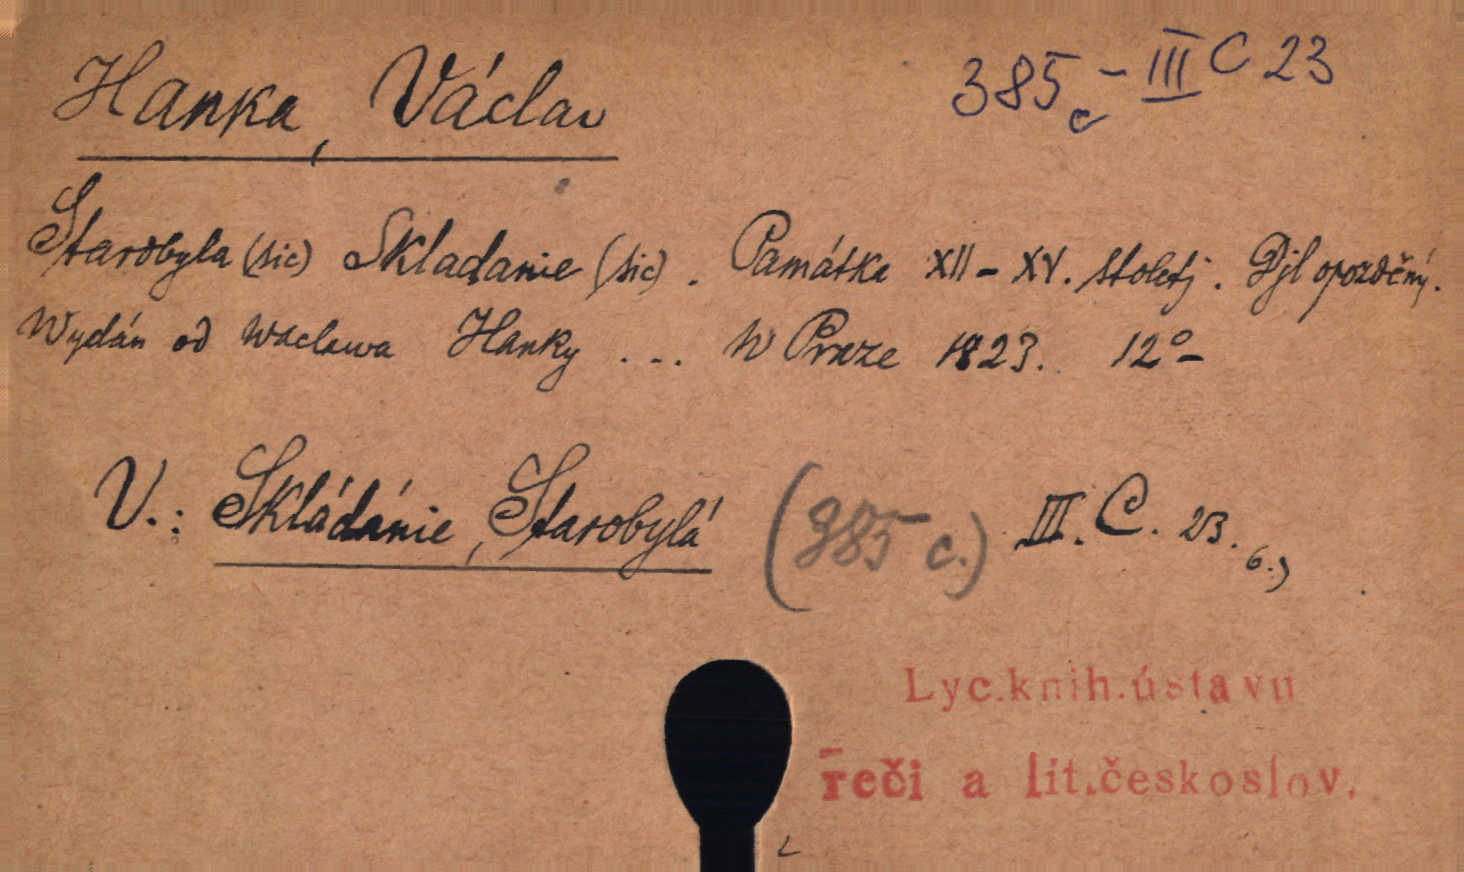 Hanka, Václav
385c - III C 23
Starobyla (sic) Skladanie (sic). Památka XII - XV. stoletj. Djl opozděný.
Wydán od Waclawa Hanky .... W Praze 1823. 12° -
V.: Skládánie, Starobylá (385 c.) III. C. 23. 6.)
Lyc.knih.ústavu
řeči a lit.českoslov.